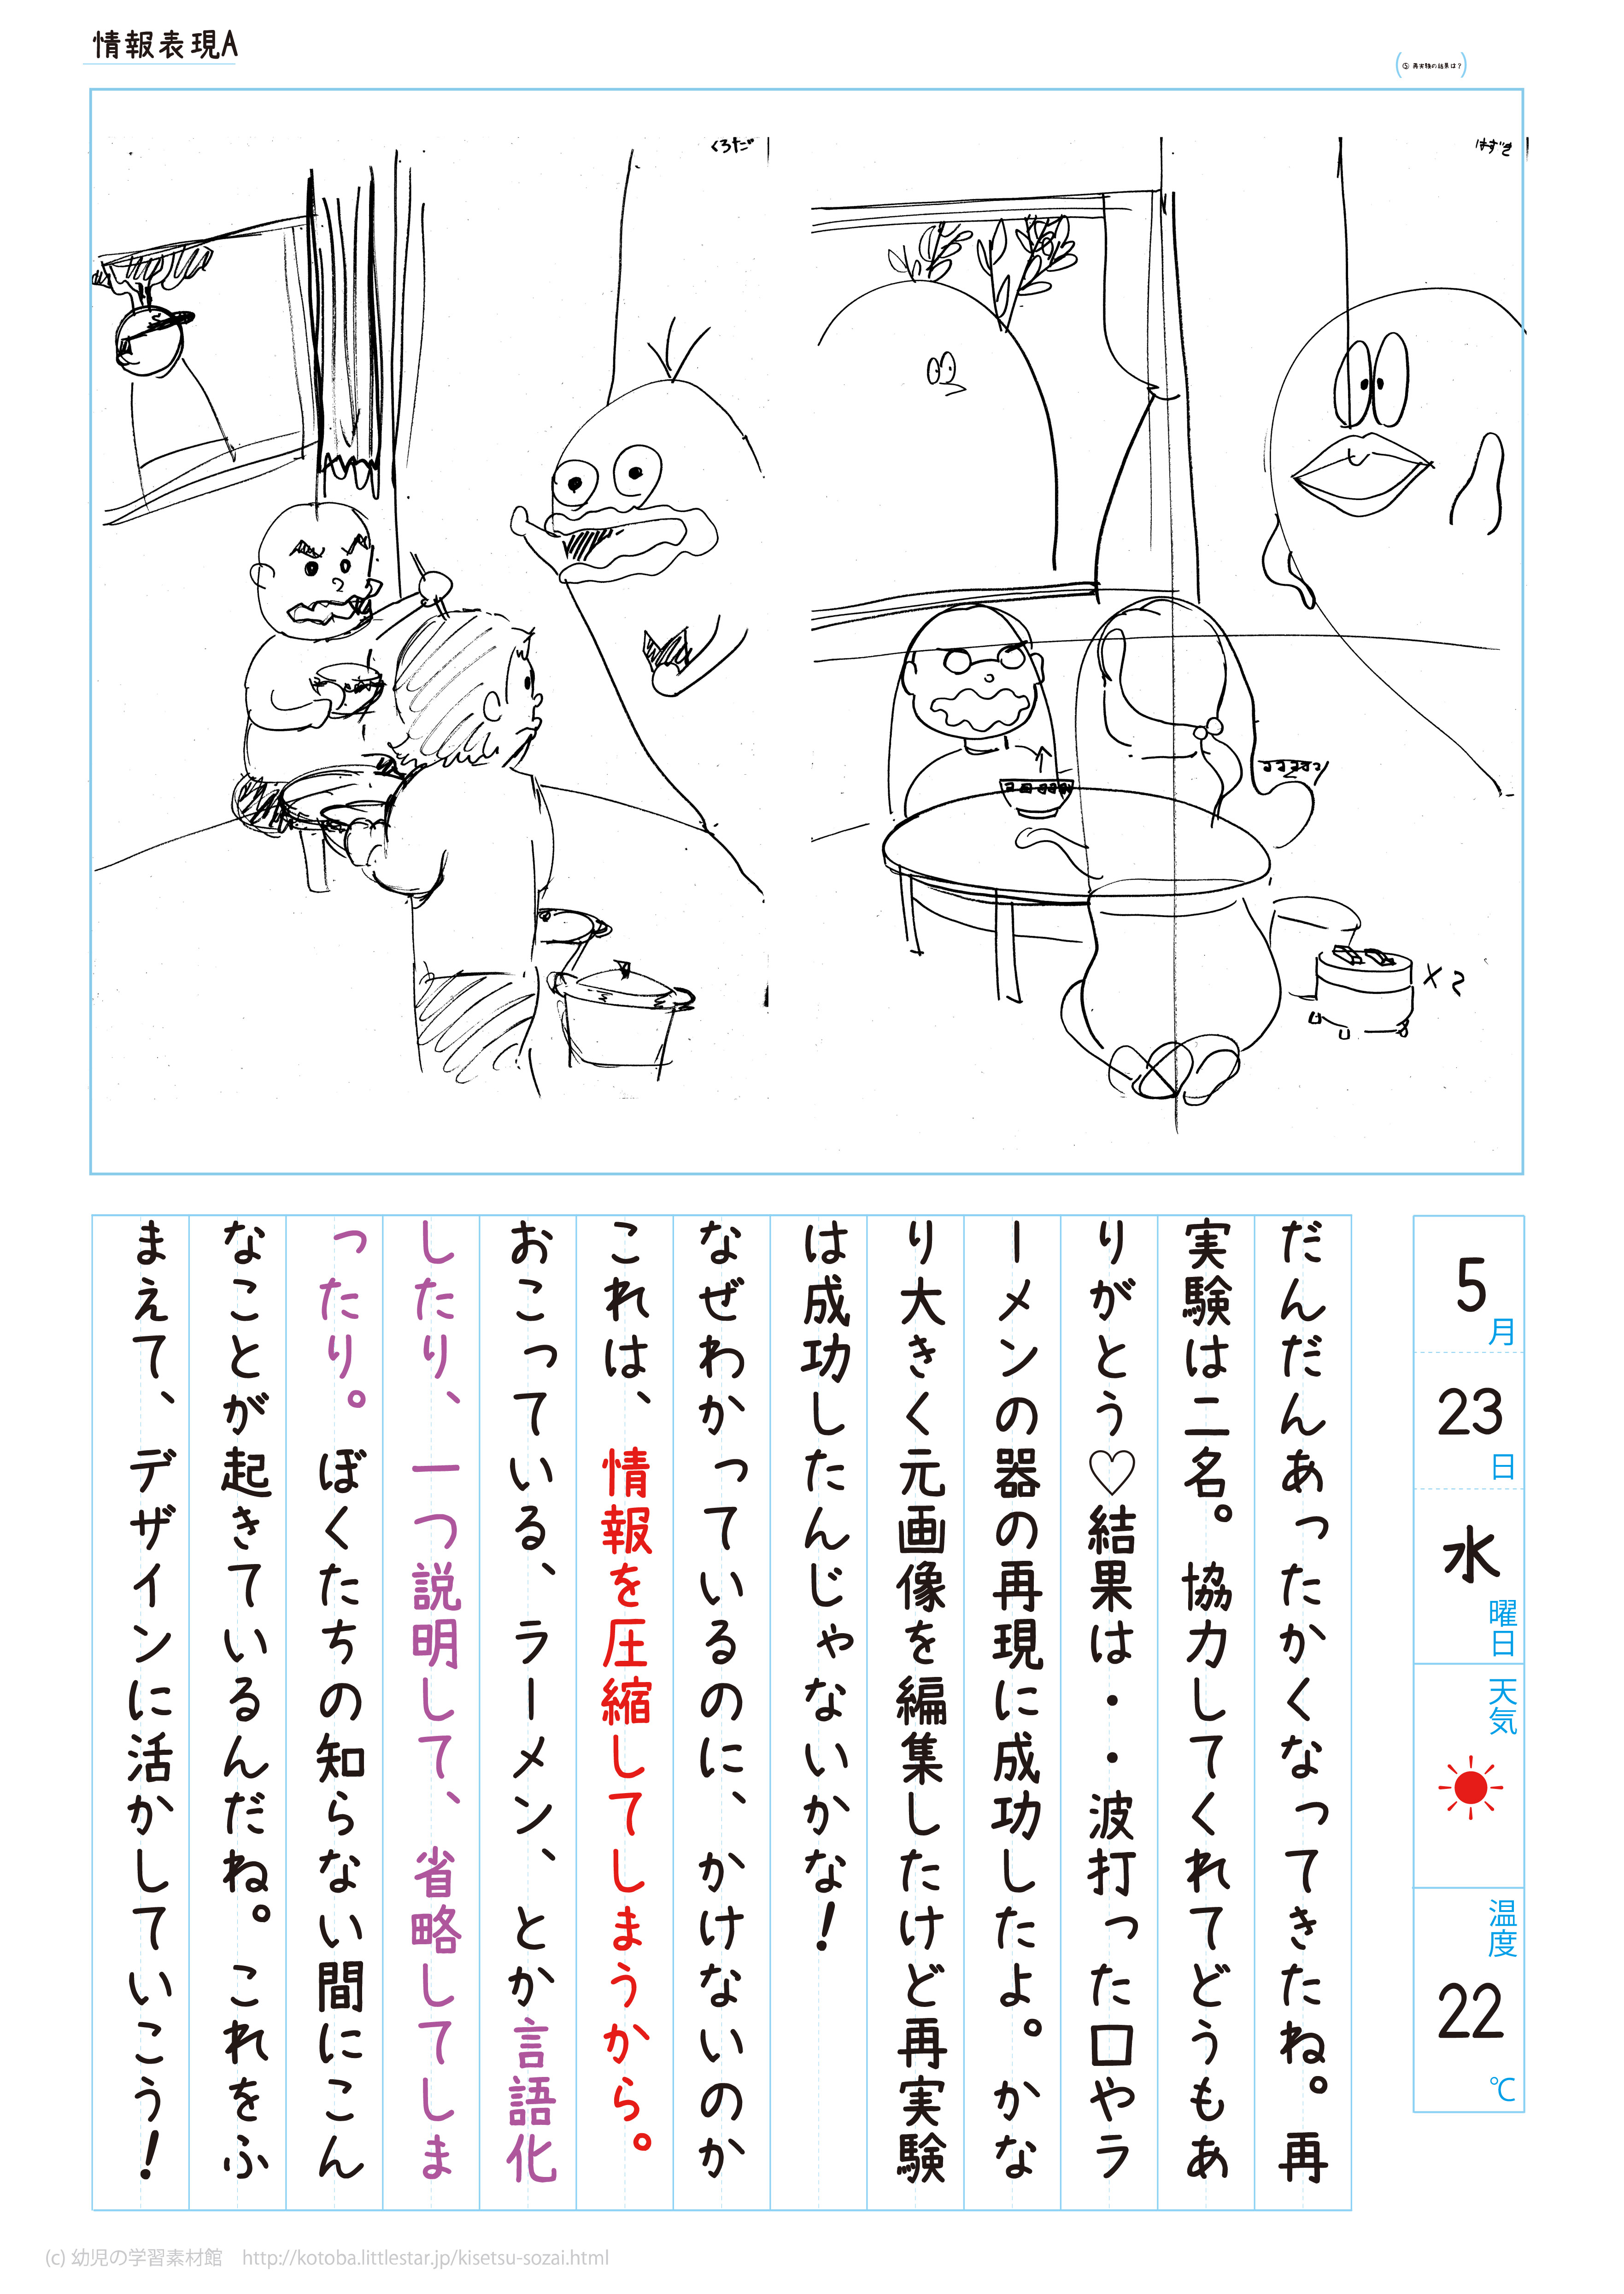 情報表現A
(⑤ 再実験の結果は?)
くろだ
はすき
×2
5月
23日
水曜日
天気
温度
22℃
だんだんあったかくなってきたね。再
実験は二名。協力してくれてどうもあ
りがとう♡結果は・・波打った口やラ
ーメンの器の再現に成功したよ。かな
り大きく元画像を編集したけど再実験
は成功したんじゃないかな!
なぜわかっているのに、かけないのか
これは、情報を圧縮してしまうから。
おこっている、ラーメン、とか言語化
したり、一つ説明して、省略してしま
ったり。ぼくたちの知らない間にこん
なことが起きているんだね。これをふ
まえて、デザインに活かしていこう!
(c) 幼児の学習素材館 http://kotoba.littlestar.jp/kisetsu-sozai.html